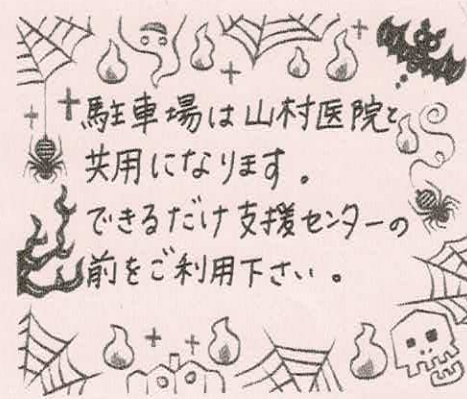 駐車場は山村医院と
共用になります。
できるだけ支援センターの
前をご利用下さい。